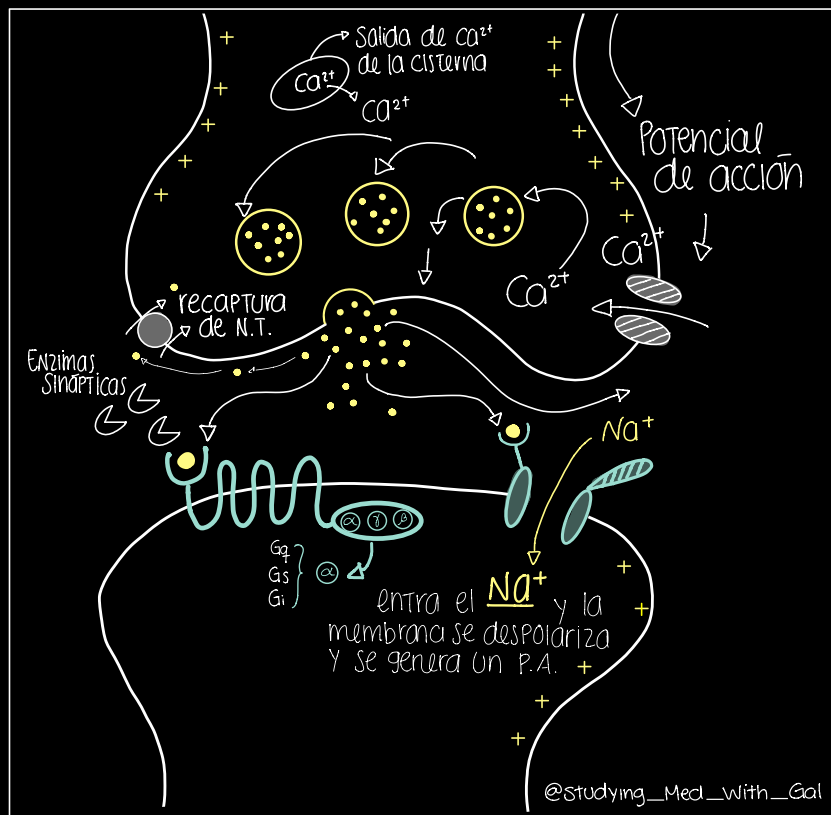 Salida de Ca²⁺
de la cisterna
Ca²⁺
Ca²⁺
Potencial
de acción
Ca²⁺
Ca²⁺
recaptura
de N.T.
Enzimas
Sinápticas
Na⁺
α γ β
Gq
Gs
Gi
α
entra el Na⁺ y la
membrana se despolariza
y se genera un P.A.
@studying_Med_With_Gal